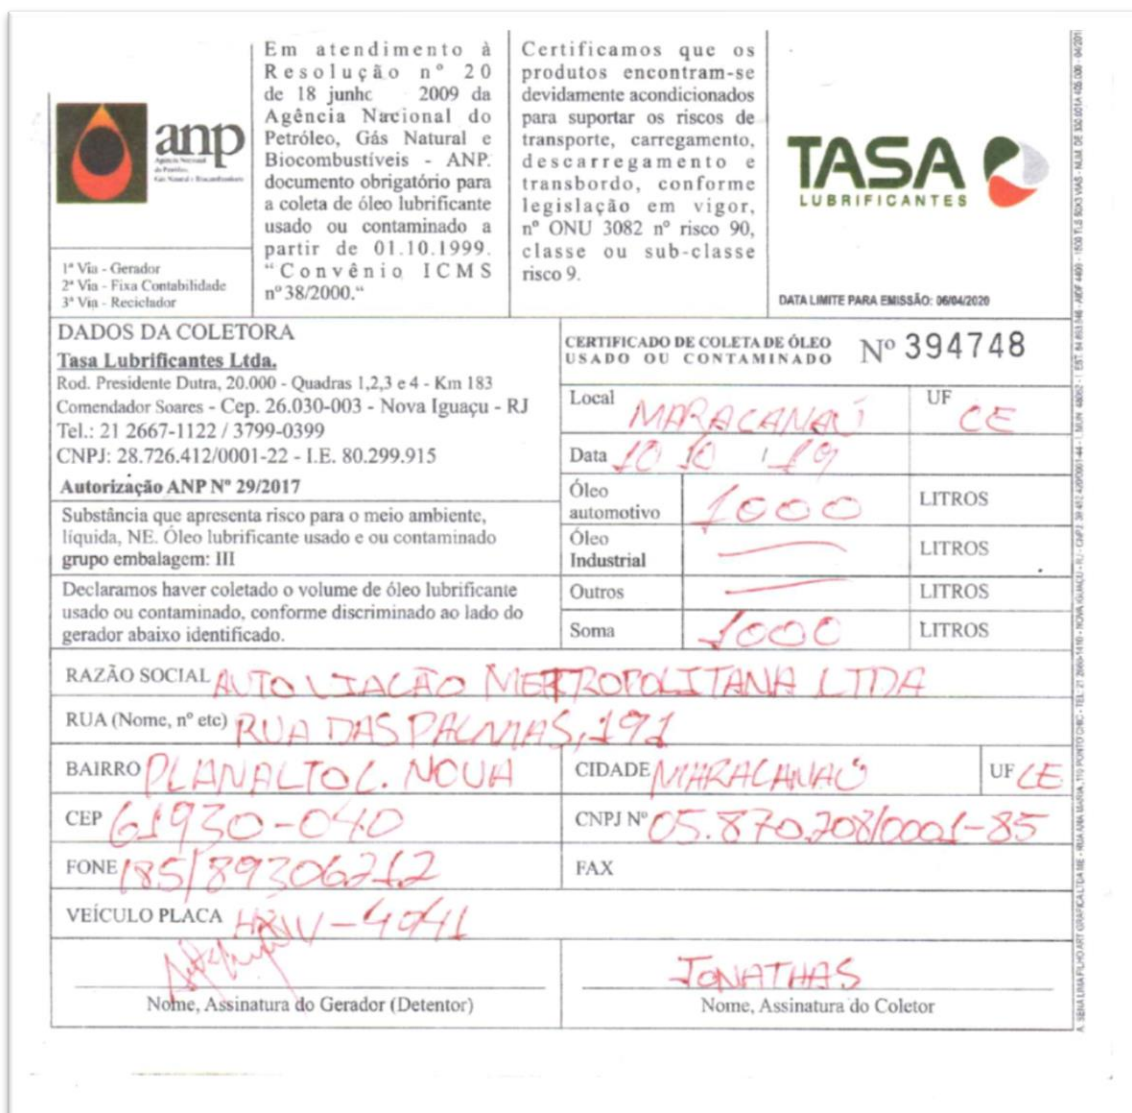 anp
Agência Nacional
do Petróleo,
Gás Natural e Biocombustíveis
1ª Via - Gerador
2ª Via - Fixa Contabilidade
3ª Via - Reciclador
Em atendimento à
Resolução nº 20
de 18 junho 2009 da
Agência Nacional do
Petróleo, Gás Natural e
Biocombustíveis - ANP.
documento obrigatório para
a coleta de óleo lubrificante
usado ou contaminado a
partir de 01.10.1999.
“Convênio ICMS
nº 38/2000.“
Certificamos que os
produtos encontram-se
devidamente acondicionados
para suportar os riscos de
transporte, carregamento,
descarregamento e
transbordo, conforme
legislação em vigor,
nº ONU 3082 nº risco 90,
classe ou sub-classe
risco 9.
TASA
LUBRIFICANTES
DATA LIMITE PARA EMISSÃO: 06/04/2020
DADOS DA COLETORA
Tasa Lubrificantes Ltda.
Rod. Presidente Dutra, 20.000 - Quadras 1,2,3 e 4 - Km 183
Comendador Soares - Cep. 26.030-003 - Nova Iguaçu - RJ
Tel.: 21 2667-1122 / 3799-0399
CNPJ: 28.726.412/0001-22 - I.E. 80.299.915
Autorização ANP Nº 29/2017
Substância que apresenta risco para o meio ambiente,
líquida, NE. Óleo lubrificante usado e ou contaminado
grupo embalagem: III
Declaramos haver coletado o volume de óleo lubrificante
usado ou contaminado, conforme discriminado ao lado do
gerador abaixo identificado.
CERTIFICADO DE COLETA DE ÓLEO
USADO OU CONTAMINADO Nº 394748
Local MARACANAÚ UF CE
Data 10 10 19
Óleo automotivo 1000 LITROS
Óleo Industrial LITROS
Outros LITROS
Soma 1000 LITROS
RAZÃO SOCIAL AUTO VIAÇÃO METROPOLITANA LTDA
RUA (Nome, nº etc) RUA DAS PALMAS, 191
BAIRRO PLANALTO C. NOVA CIDADE MARACANAÚ UF CE
CEP 61930-040 CNPJ Nº 05.870.208/0001-85
FONE (85) 89306212 FAX
VEÍCULO PLACA -4041
JONATHAS
Nome, Assinatura do Gerador (Detentor) Nome, Assinatura do Coletor